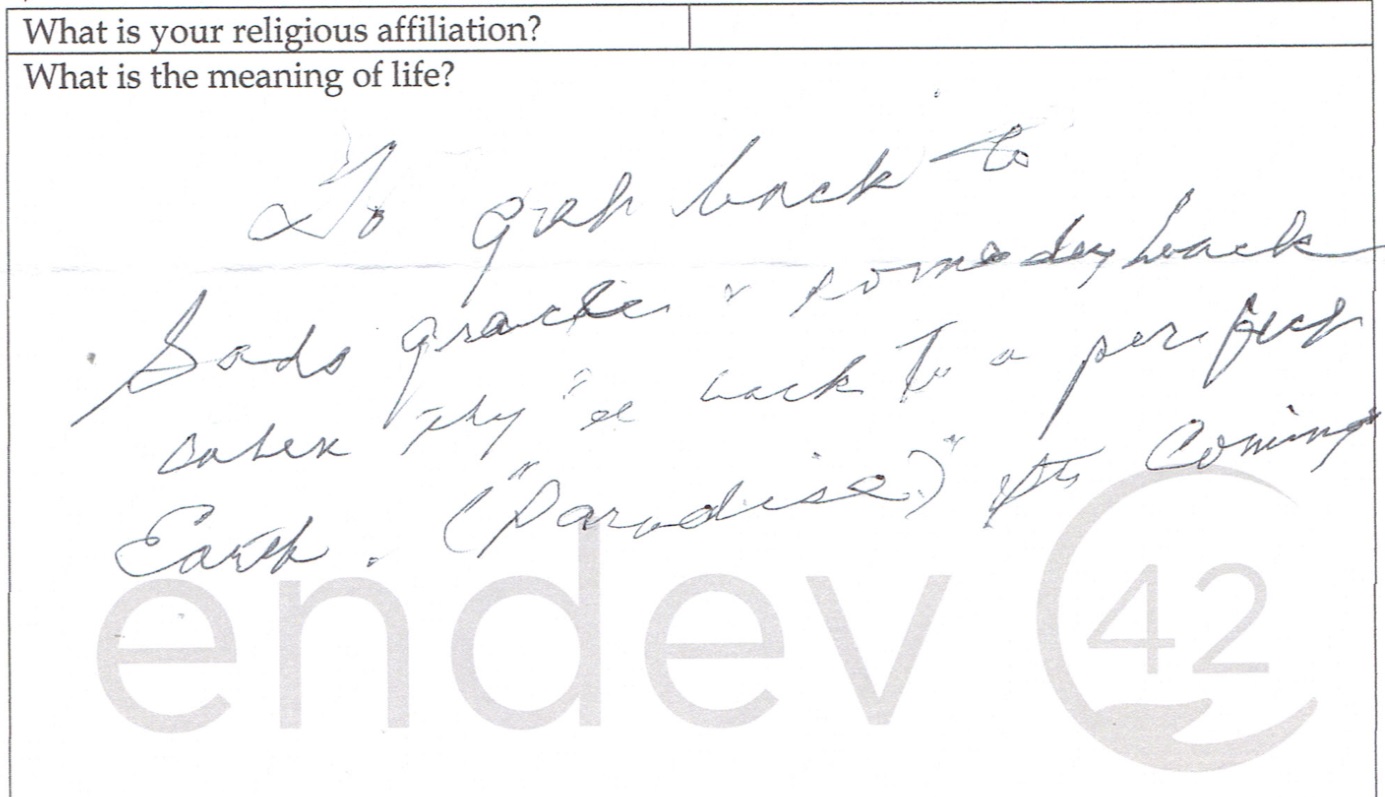 What is your religious affiliation?
What is the meaning of life?
To get back to
Gods graces & someday back
when back to a perfect
Earth. ("Paradise") Its Coming
endev 42